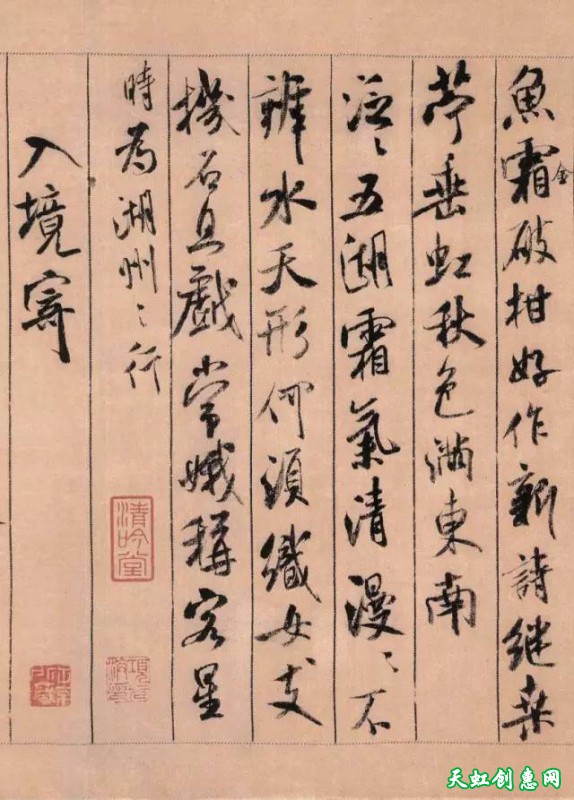 魚霜破柑好作新詩継桑
金
苧垂虹秋色滿東南
泛〻五湖霜氣清漫〻不
辨水天形何須織女支
機石且戲常娥稱客星
時為湖州〻行
入境寄
清吟堂
天虹创惠网